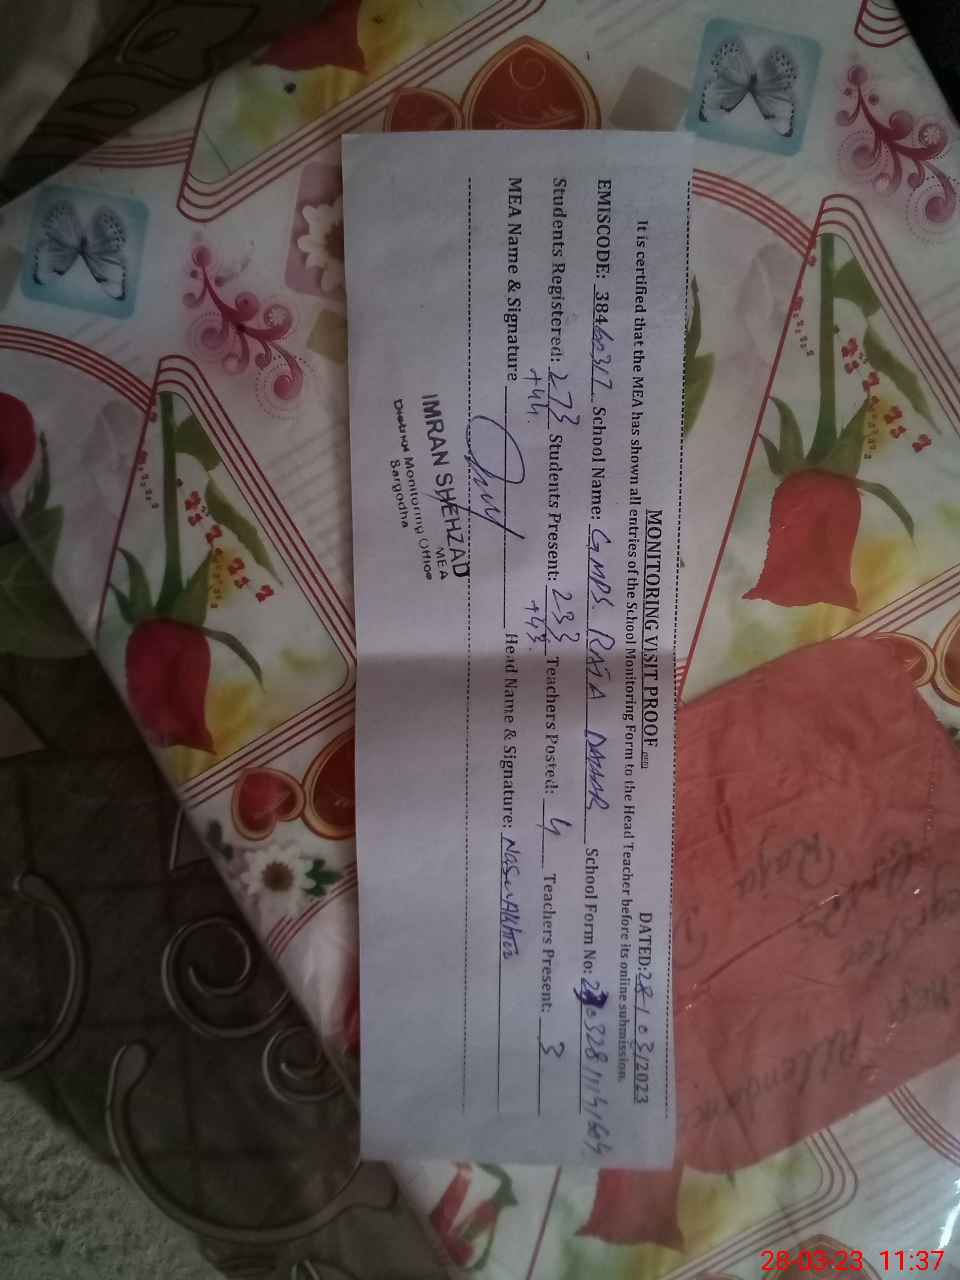 MONITORING VISIT PROOF
DATED: 28/03/2023
It is certified that the MEA has shown all entries of the School Monitoring Form to the Head Teacher before its online submission.
EMISCODE: 38460317 School Name: GMPS. RAJA DAHAR School Form No:
Students Registered: 273 Students Present: 233 Teachers Posted: 4 Teachers Present: 3
+44. +43.
MEA Name & Signature Head Name & Signature:
IMRAN SHEHZAD
MEA
District Monitoring Office
Sargodha
Raja
28-03-23 11:37